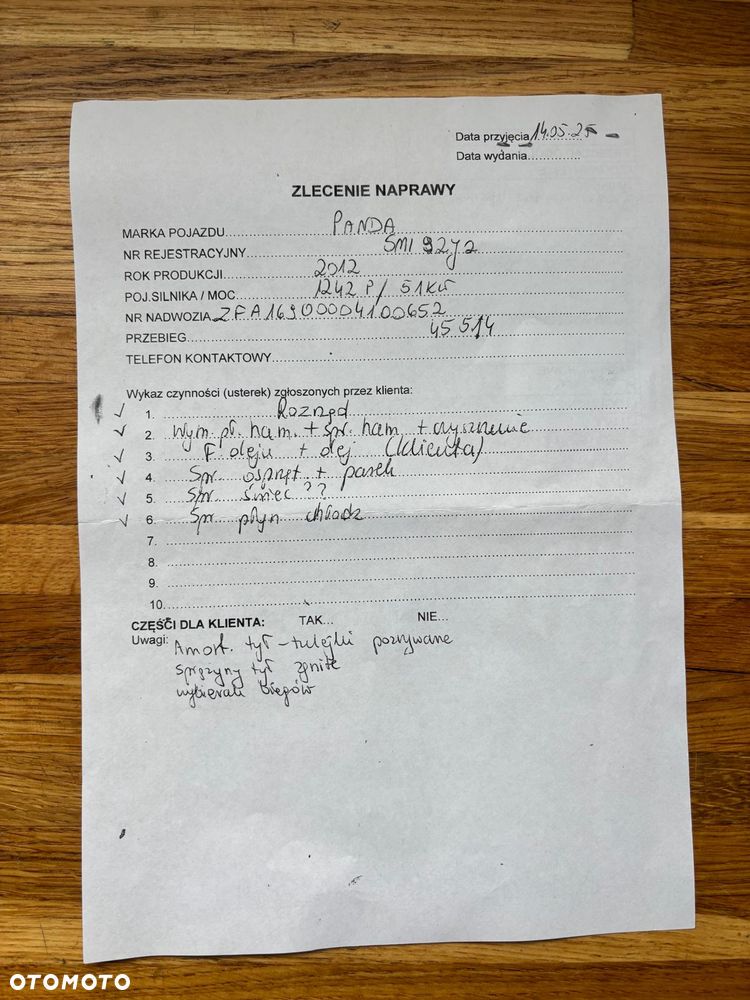 Data przyjęcia 14.05.25
Data wydania..............
ZLECENIE NAPRAWY
MARKA POJAZDU PANDA
NR REJESTRACYJNY SMI 92
ROK PRODUKCJI 2012
POJ.SILNIKA / MOC 1242 P/ 51KW
NR NADWOZIA ZFA16900004100652
PRZEBIEG 45 514
TELEFON KONTAKTOWY
Wykaz czynności (usterek) zgłoszonych przez klienta:
✓ 1. Rozrząd
✓ 2. Wym. pł. ham. + spr. ham + czyszczenie
✓ 3. F. oleju + olej (klienta)
✓ 4. Spr. osprzęt + pasek
✓ 5. Spr. świec ??
✓ 6. Spr płyn chłodz
7.
8.
9.
10.
CZĘŚCI DLA KLIENTA: TAK... NIE...
Uwagi: Amort. tył - tulejki pozrywane
sprężyny tył zgniłe
wybierak biegów
OTOMOTO